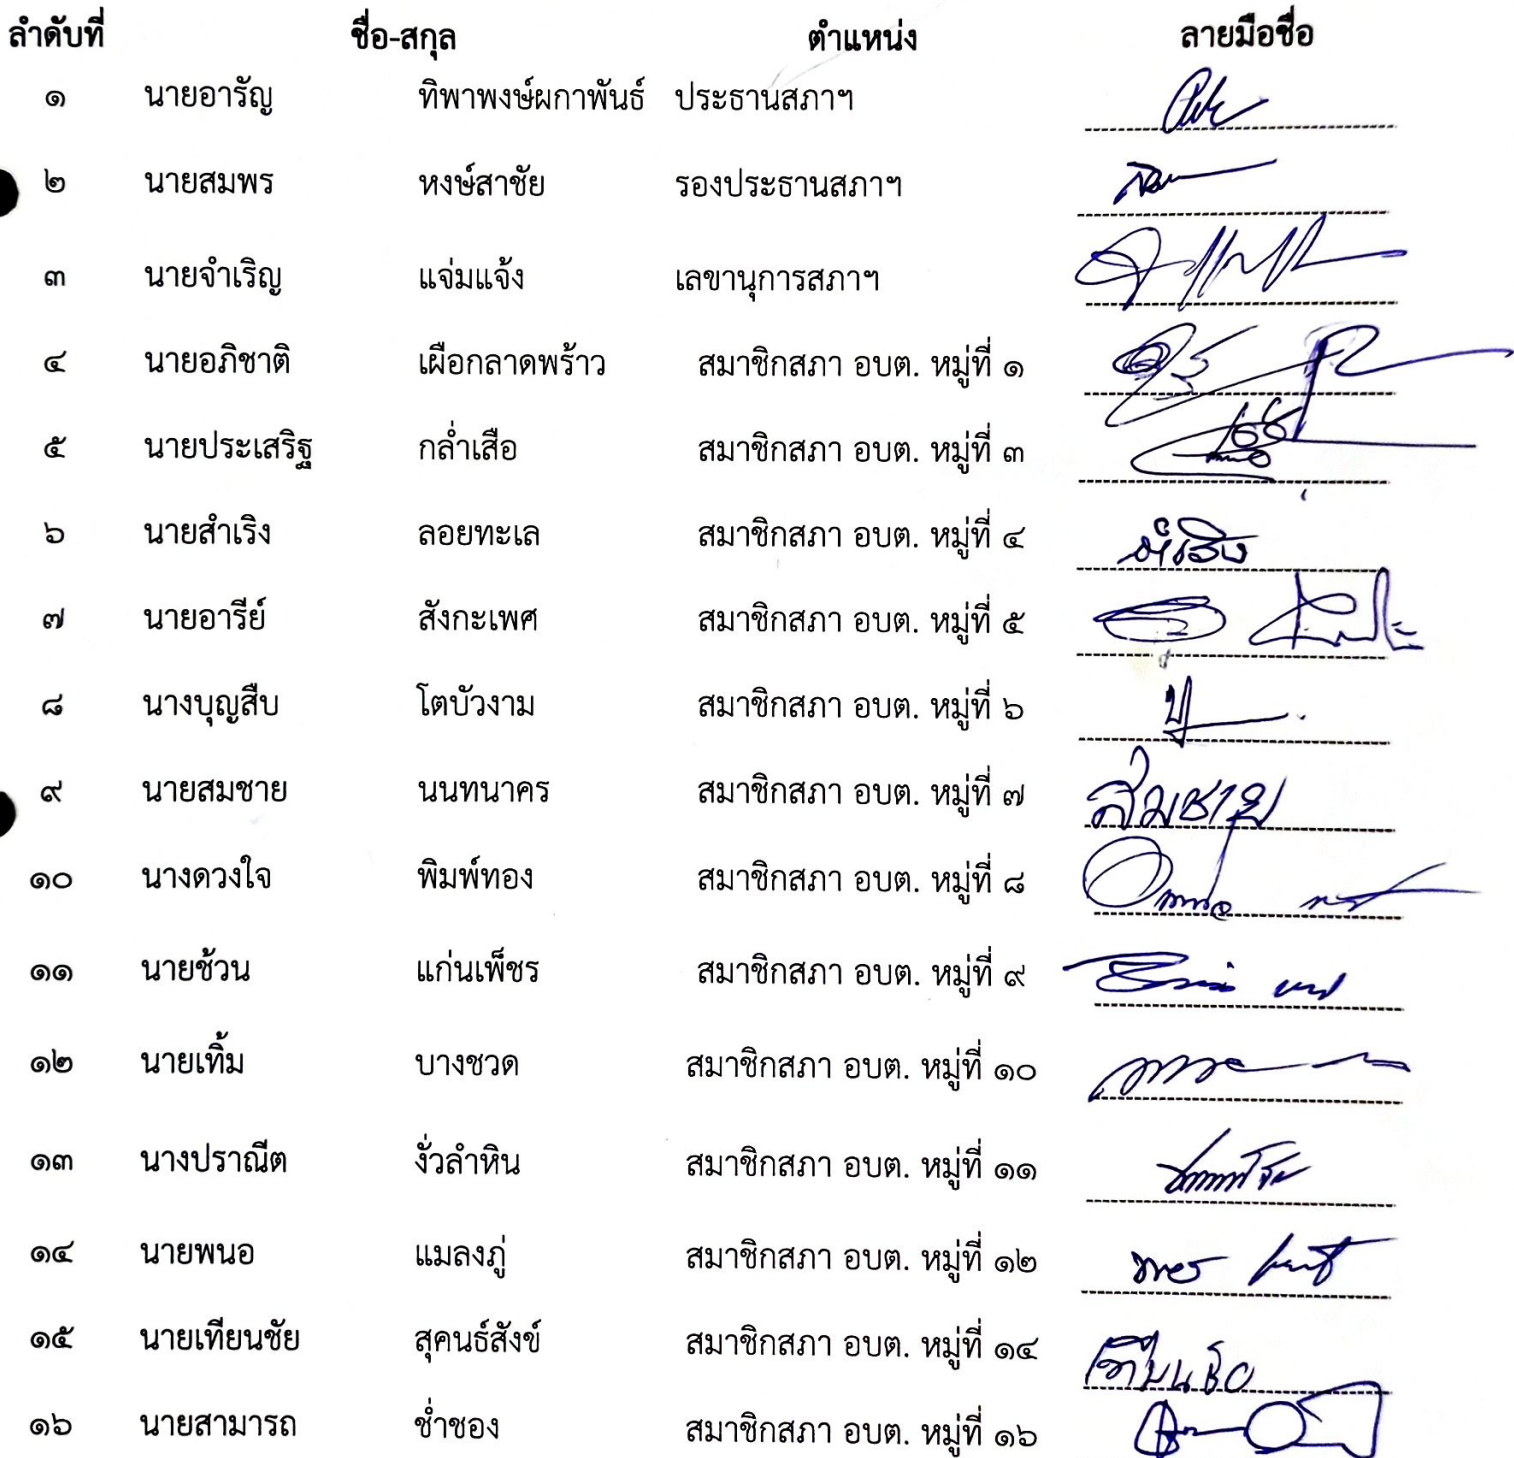 ลำดับที่ ชื่อ-สกุล ตำแหน่ง ลายมือชื่อ
๑ นายอารัญ ทิพาพงษ์ผกาพันธ์ ประธานสภาฯ
๒ นายสมพร หงษ์สาชัย รองประธานสภาฯ
๓ นายจำเริญ แจ่มแจ้ง เลขานุการสภาฯ
๔ นายอภิชาติ เผือกลาดพร้าว สมาชิกสภา อบต. หมู่ที่ ๑
๕ นายประเสริฐ กล่ำเสือ สมาชิกสภา อบต. หมู่ที่ ๓
๖ นายสำเริง ลอยทะเล สมาชิกสภา อบต. หมู่ที่ ๔ สำเริง
๗ นายอารีย์ สังกะเพศ สมาชิกสภา อบต. หมู่ที่ ๕
๘ นางบุญสืบ โตบัวงาม สมาชิกสภา อบต. หมู่ที่ ๖
๙ นายสมชาย นนทนาคร สมาชิกสภา อบต. หมู่ที่ ๗ สมชาย
๑๐ นางดวงใจ พิมพ์ทอง สมาชิกสภา อบต. หมู่ที่ ๘
๑๑ นายช้วน แก่นเพ็ชร สมาชิกสภา อบต. หมู่ที่ ๙
๑๒ นายเทิ้ม บางชวด สมาชิกสภา อบต. หมู่ที่ ๑๐
๑๓ นางปราณีต งั่วลำหิน สมาชิกสภา อบต. หมู่ที่ ๑๑
๑๔ นายพนอ แมลงภู่ สมาชิกสภา อบต. หมู่ที่ ๑๒
๑๕ นายเทียนชัย สุคนธ์สังข์ สมาชิกสภา อบต. หมู่ที่ ๑๔
๑๖ นายสามารถ ช่ำชอง สมาชิกสภา อบต. หมู่ที่ ๑๖